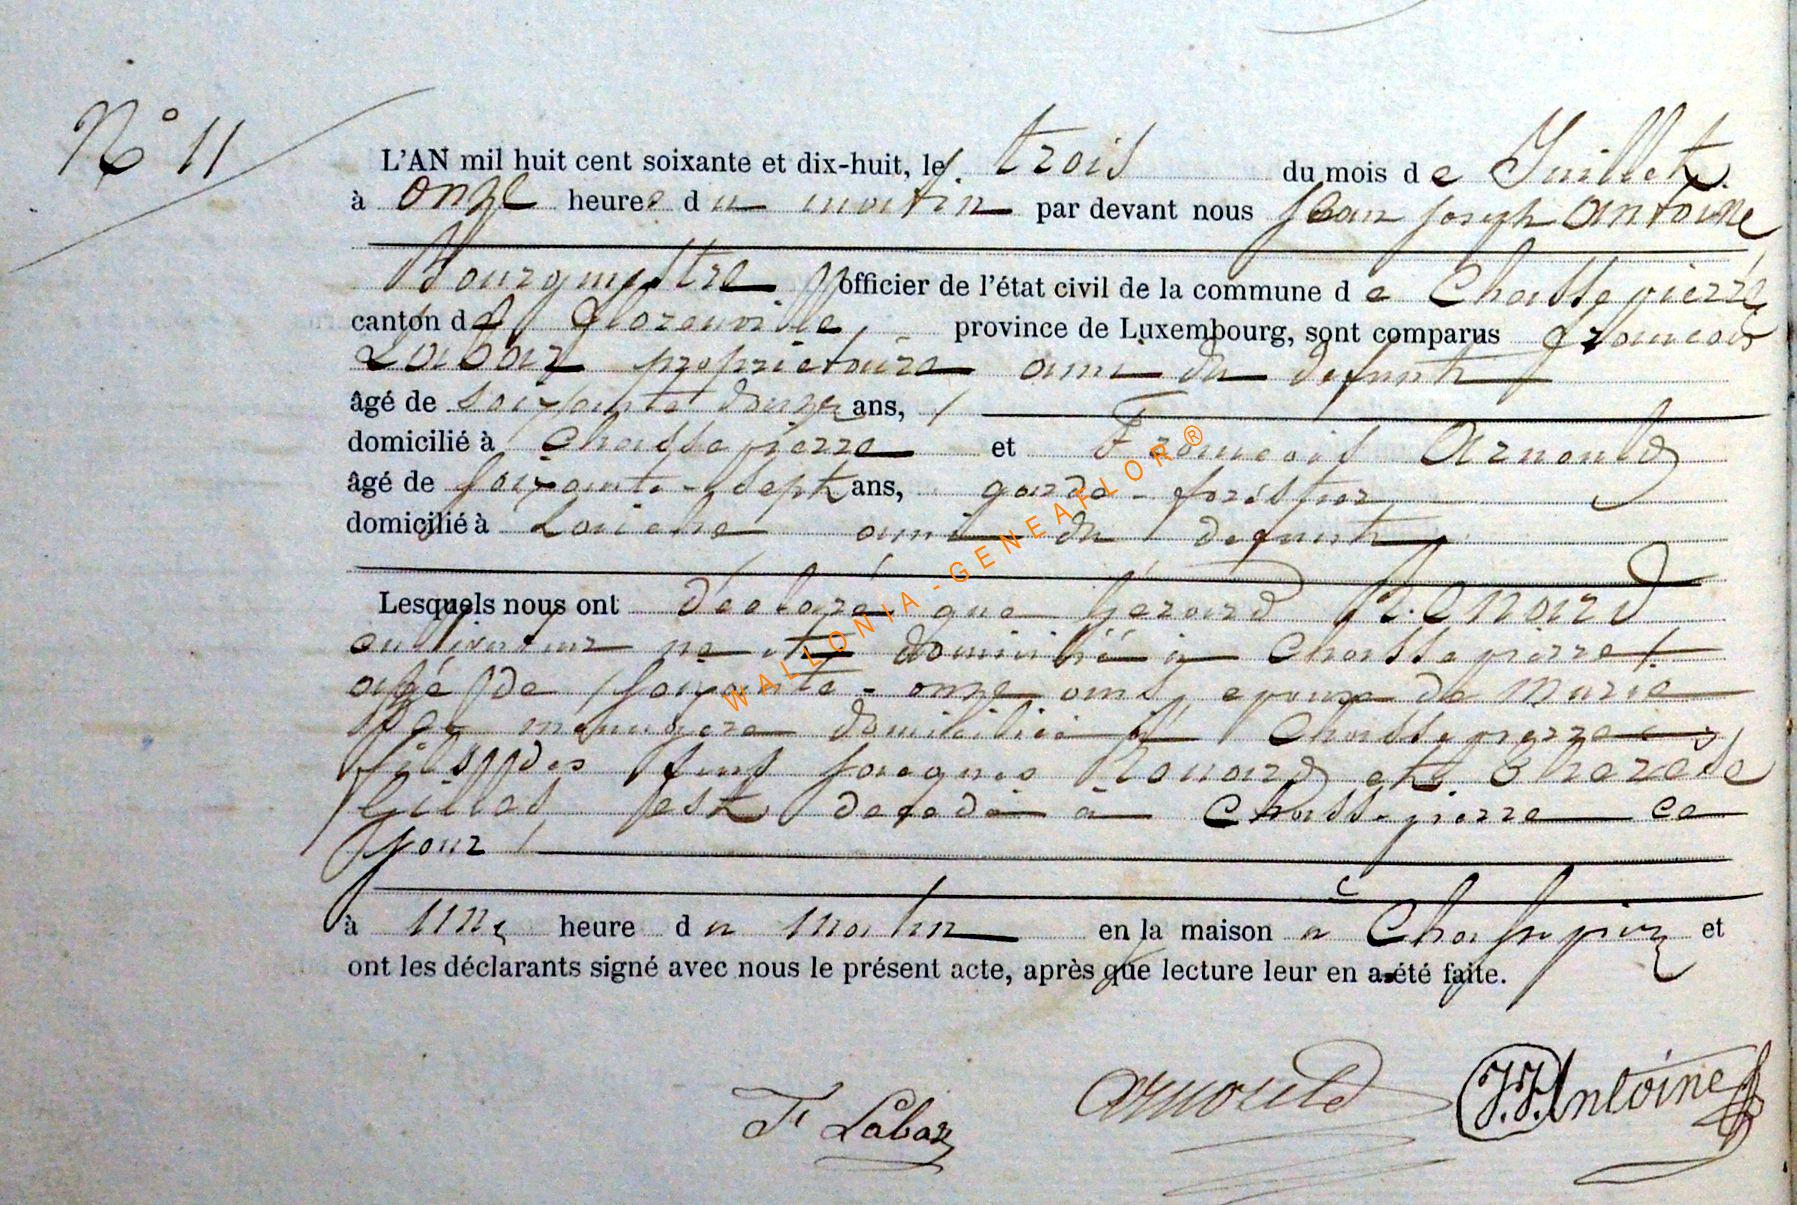 N° 11
L'AN mil huit cent soixante et dix-huit, le trois du mois de Juillet
à onze heures du matin par devant nous Jean Joseph Antoine
Bourgmestre officier de l'état civil de la commune de Chassepierre
canton de Florenville, province de Luxembourg, sont comparus francois
Labar proprietaire ami du defunt
âgé de soixante douze ans,
domicilié à Chassepierre et francois Arnould
âgé de soixante-sept ans, garde-forestier
domicilié à Laiche ami du defunt
Lesquels nous ont déclaré que Gérard Renard
cultivateur né et domicilié à Chassepierre
agé de soixante-onze ans, epoux de Marie
menagere domiciliée à Chassepierre
fils des feus jacques Renard et Therese
Gilles est decedé à Chassepierre ce
jour
à une heure du matin en la maison à Chassepierre et
ont les déclarants signé avec nous le présent acte, après que lecture leur en a été faite.
F Labar Arnould J.J. Antoine
WALLONIA-GENEAFLOR®